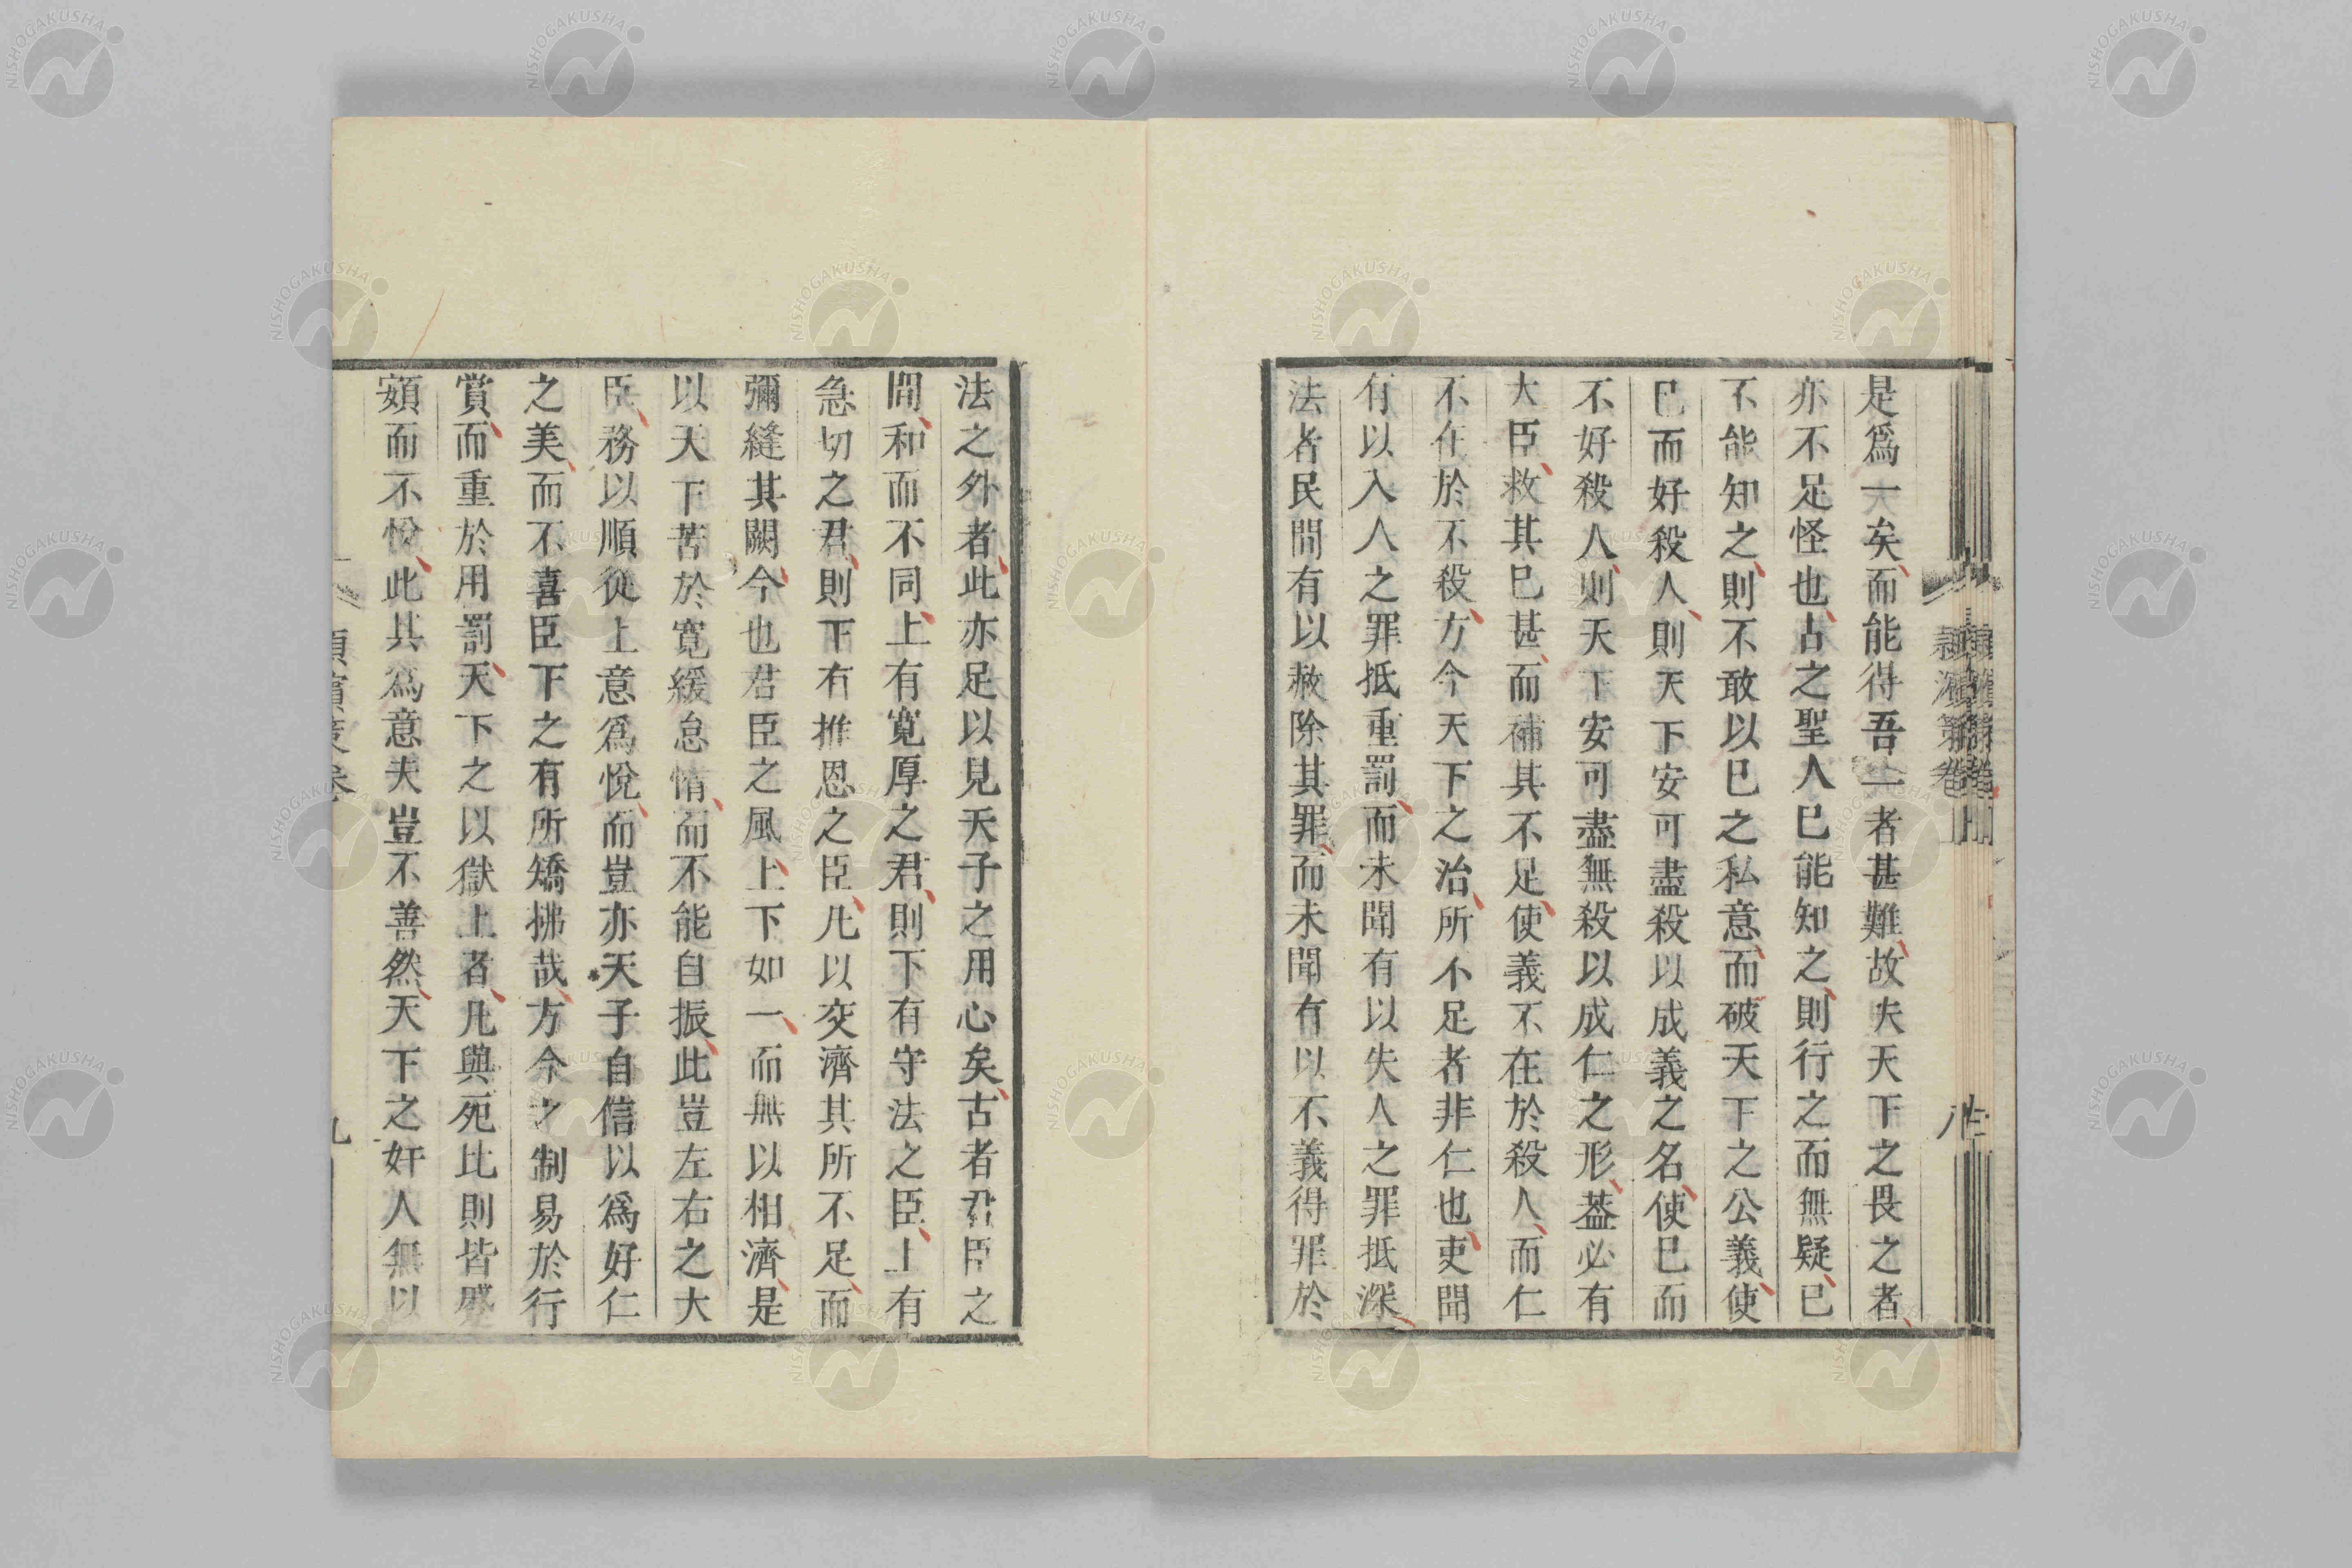 是爲一矣而能得吾一者甚難故夫天下之畏之者
亦不足怪也古之聖人已能知之則行之而無疑已
不能知之則不敢以已之私意而破天下之公義使
已而好殺人則天下安可盡殺以成義之名使已而
不好殺人則天下安可盡無殺以成仁之形葢必有
大臣救其已甚而補其不足使義不在於殺人而仁
不在於不殺方今天下之治所不足者非仁也吏聞
有以入人之罪抵重罰而未聞有以失人之罪抵深
法者民間有以赦除其罪而未聞有以不義得罪於
法之外者此亦足以見天子之用心矣古者君臣之
間和而不同上有寬厚之君則下有守法之臣上有
急切之君則下有推恩之臣凡以交濟其所不足而
彌縫其闕今也君臣之風上下如一而無以相濟是
以天下苦於寬緩怠惰而不能自振此豈左右之大
臣務以順從上意爲悅而豈亦天子自信以爲好仁
之美而不喜臣下之有所矯拂哉方今之制易於行
賞而重於用罰天下之以獄上者凡與死比則皆蹙
頞而不悅此其爲意夫豈不善然天下之奸人無以
潁濱策卷
九
NISHOGAKUSHA